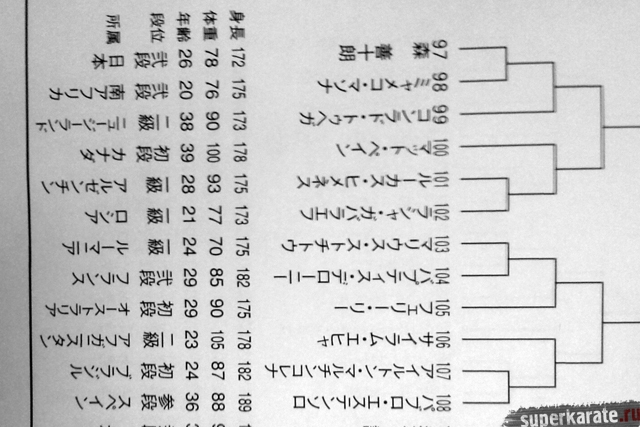 身長 体重 年齢 段位 所属
97 森 善十朗 172 78 26 弐段 日本
98 ミヤメコ・マンナ 175 76 20 弐段 南アフリカ
99 コンラド・トゥヘカ 173 90 38 二級 ニュージーランド
100 マット・ペイン 178 100 39 初段 カナダ
101 ルーカス・ヒメネス 175 93 28 一級 アルゼンチン
102 ラジャ・ガバラエフ 173 77 21 一級 ロシア
103 マリウス・ストチトゥ 175 70 24 一級 ルーマニア
104 バプティス・デローニー 182 85 29 弐段 フランス
105 フェリー・リー 175 90 29 初段 オーストラリア
106 サイラム・エヒヤ 178 105 23 二級 アフガニスタン
107 アイルトン・マルチンコレナ 182 87 24 初段 ブラジル
108 パブロ・エステンソロ 189 88 36 参段 スペイン
superkarate.ru